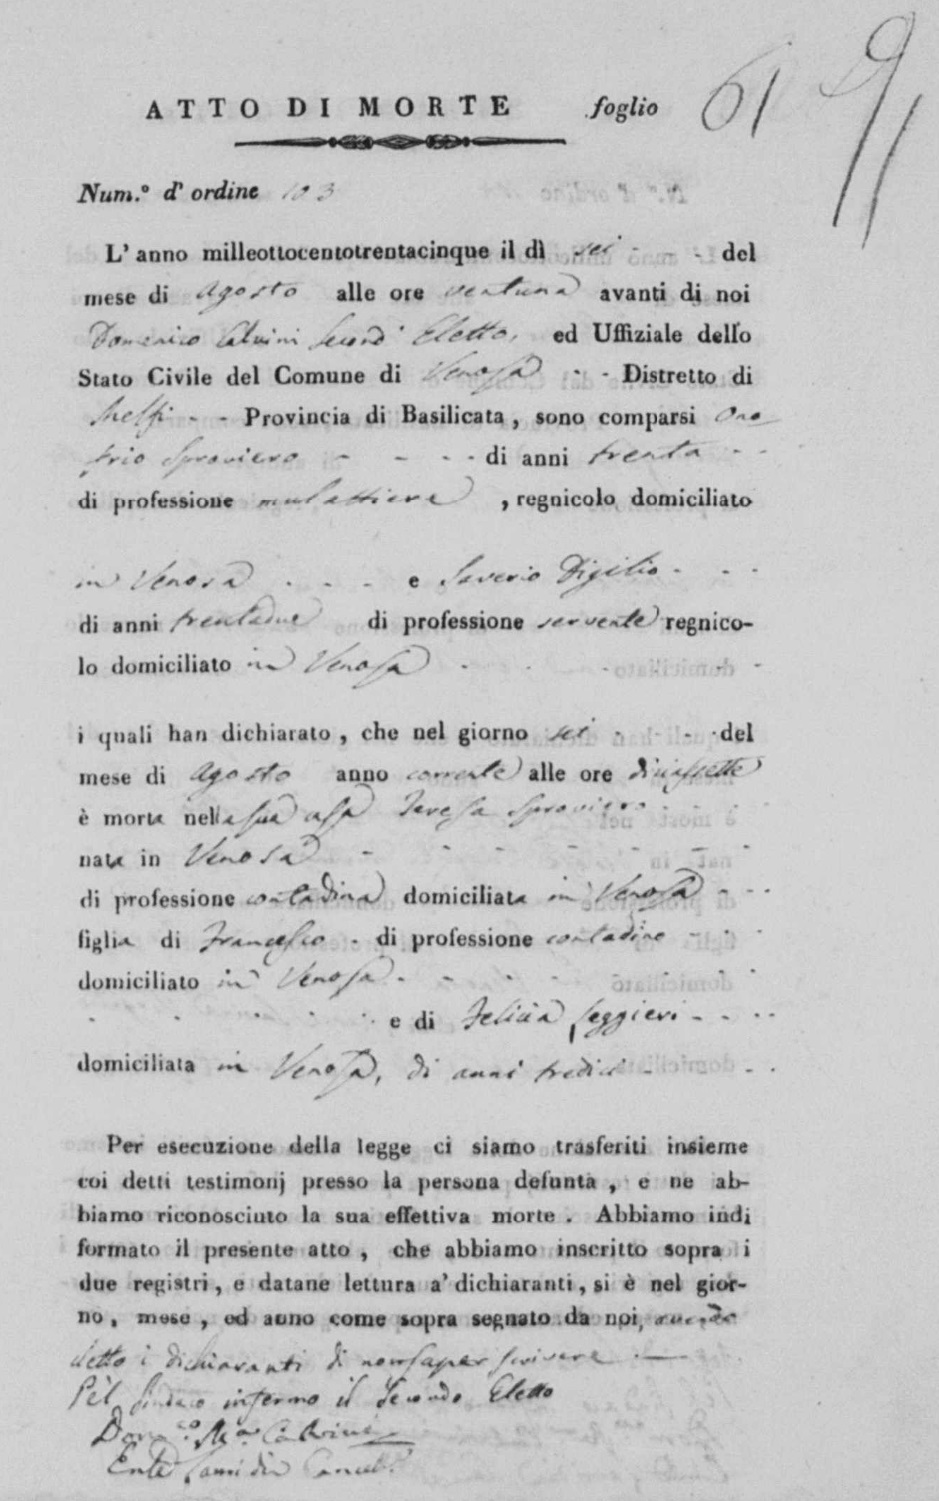 ATTO DI MORTE foglio 61
Num.º d' ordine 103
L' anno milleottocentotrentacinque il dì sei del
mese di Agosto alle ore ventuna avanti di noi
Domenico Secondo Eletto, ed Uffiziale dello
Stato Civile del Comune di Venosa Distretto di
Melfi Provincia di Basilicata, sono comparsi Ono
frio Sproviero di anni trenta
di professione mulattiere, regnicolo domiciliato
in Venosa e Saverio Digilio
di anni trentadue di professione servente regnico-
lo domiciliato in Venosa
i quali han dichiarato, che nel giorno sei del
mese di Agosto anno corrente alle ore diciassette
è morta nella sua casa Teresa Sproviero
nata in Venosa
di professione contadina domiciliata in Venosa
figlia di Francesco di professione contadino
domiciliato in Venosa
e di Felicia Leggieri
domiciliata in Venosa, di anni tredici
Per esecuzione della legge ci siamo trasferiti insieme
coi detti testimonj presso la persona defunta, e ne ab-
biamo riconosciuto la sua effettiva morte. Abbiamo indi
formato il presente atto, che abbiamo inscritto sopra i
due registri, e datane lettura a' dichiaranti, si è nel gior-
no, mese, ed anno come sopra segnato da noi, avendo
detto i dichiaranti di non saper scrivere
Pel Sindaco infermo il Secondo Eletto
Dom.co M.a
Cancel.